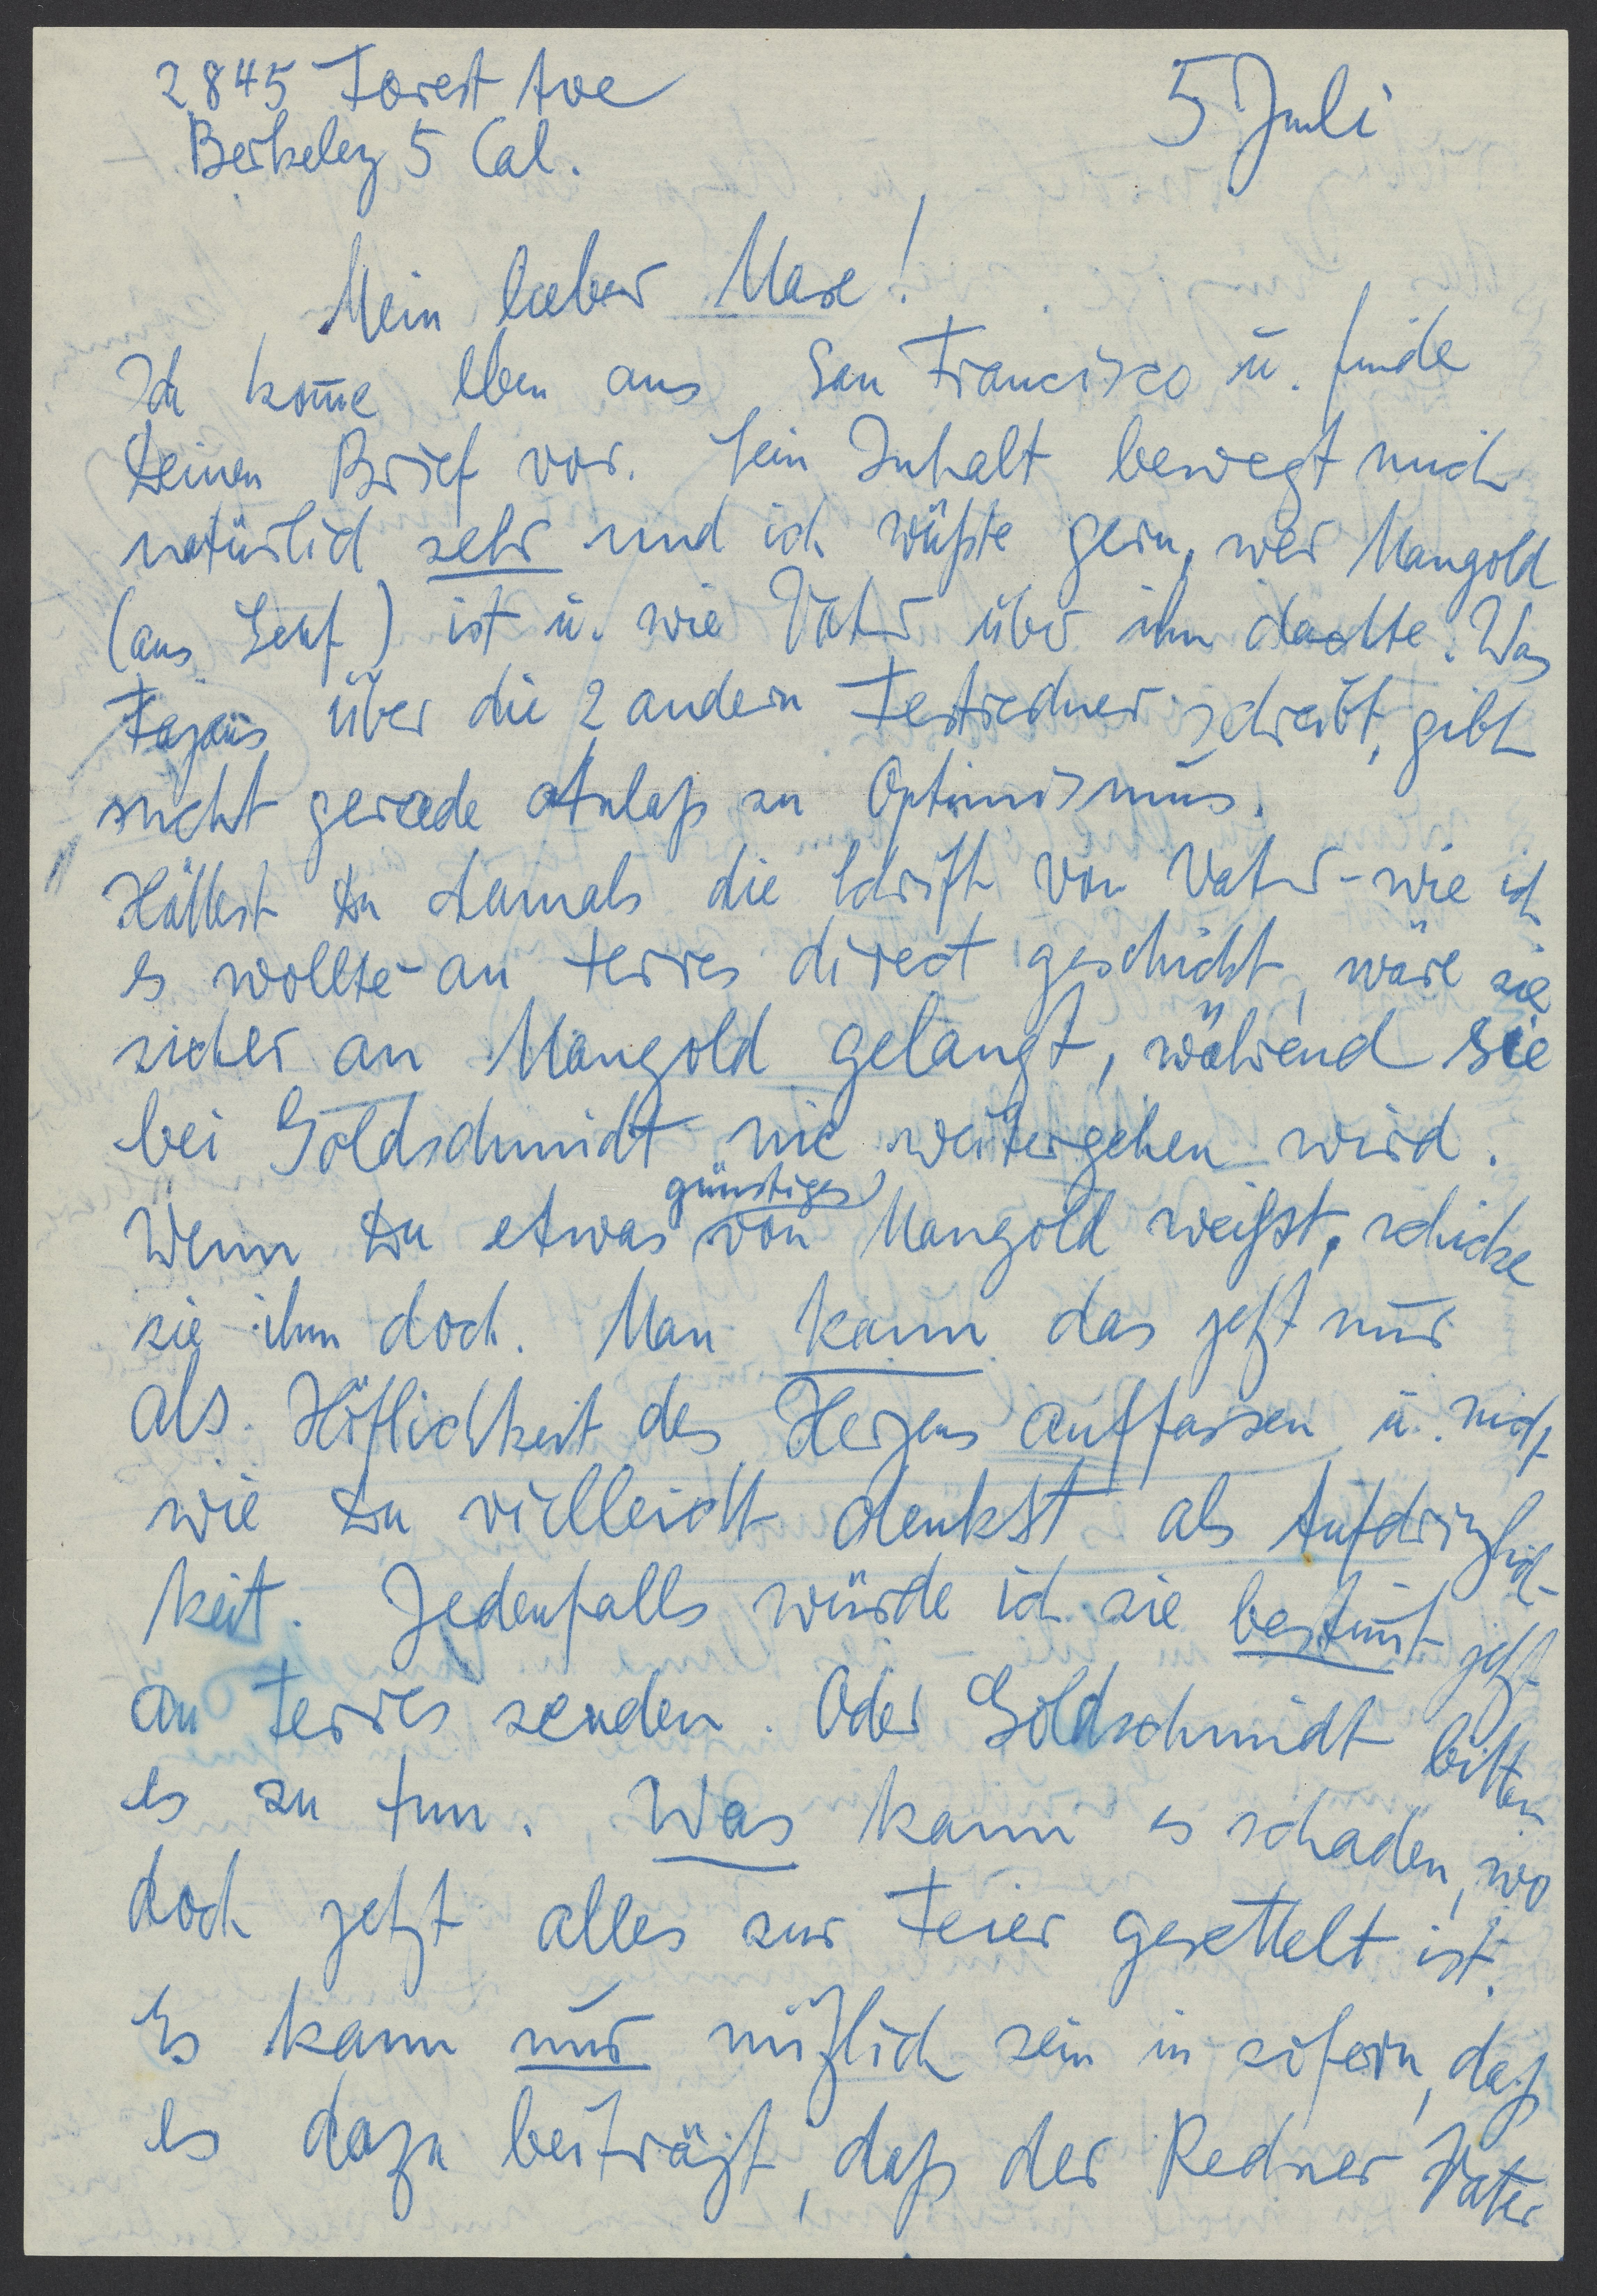 2845 Forest Ave
Berkeley 5 Cal.
5 Juli
Mein lieber Maxe!
Ich kom̅e eben aus San Francisco u. finde
Deinen Brief vor. Sein Inhalt bewegt mich
natürlich sehr und ich wüßte gern, wer Mangold
(aus Genf) ist u. wie Vater über ihn dachte. Was
über die 2 andern Festredner schreibt, gibt
nicht gerade Anlaß zu Optimismus.
Hättest Du damals die Schrift von Vater - wie ich
es wollte - an Ferres direct geschickt, wäre sie
sicher an Mangold gelangt, während sie
bei Goldschmidt nie weitergehen wird.
Wenn Du etwas günstiges von Mangold weißt, schicke
sie ihm doch. Man kann das jetzt nur
als Höflichkeit des Herzens auffassen u. nicht
wie Du vielleicht denkst als Aufdringlich-
keit. Jedenfalls würde ich sie bestim̅t jetzt
an Ferres senden. Oder Goldschmidt bitten
es zu tun. Was kann es schaden, wo
doch jetzt alles zur Feier gesettelt ist.
Es kann nur nützlich sein in sofern, daß
es dazu beiträgt, daß der Redner Vater